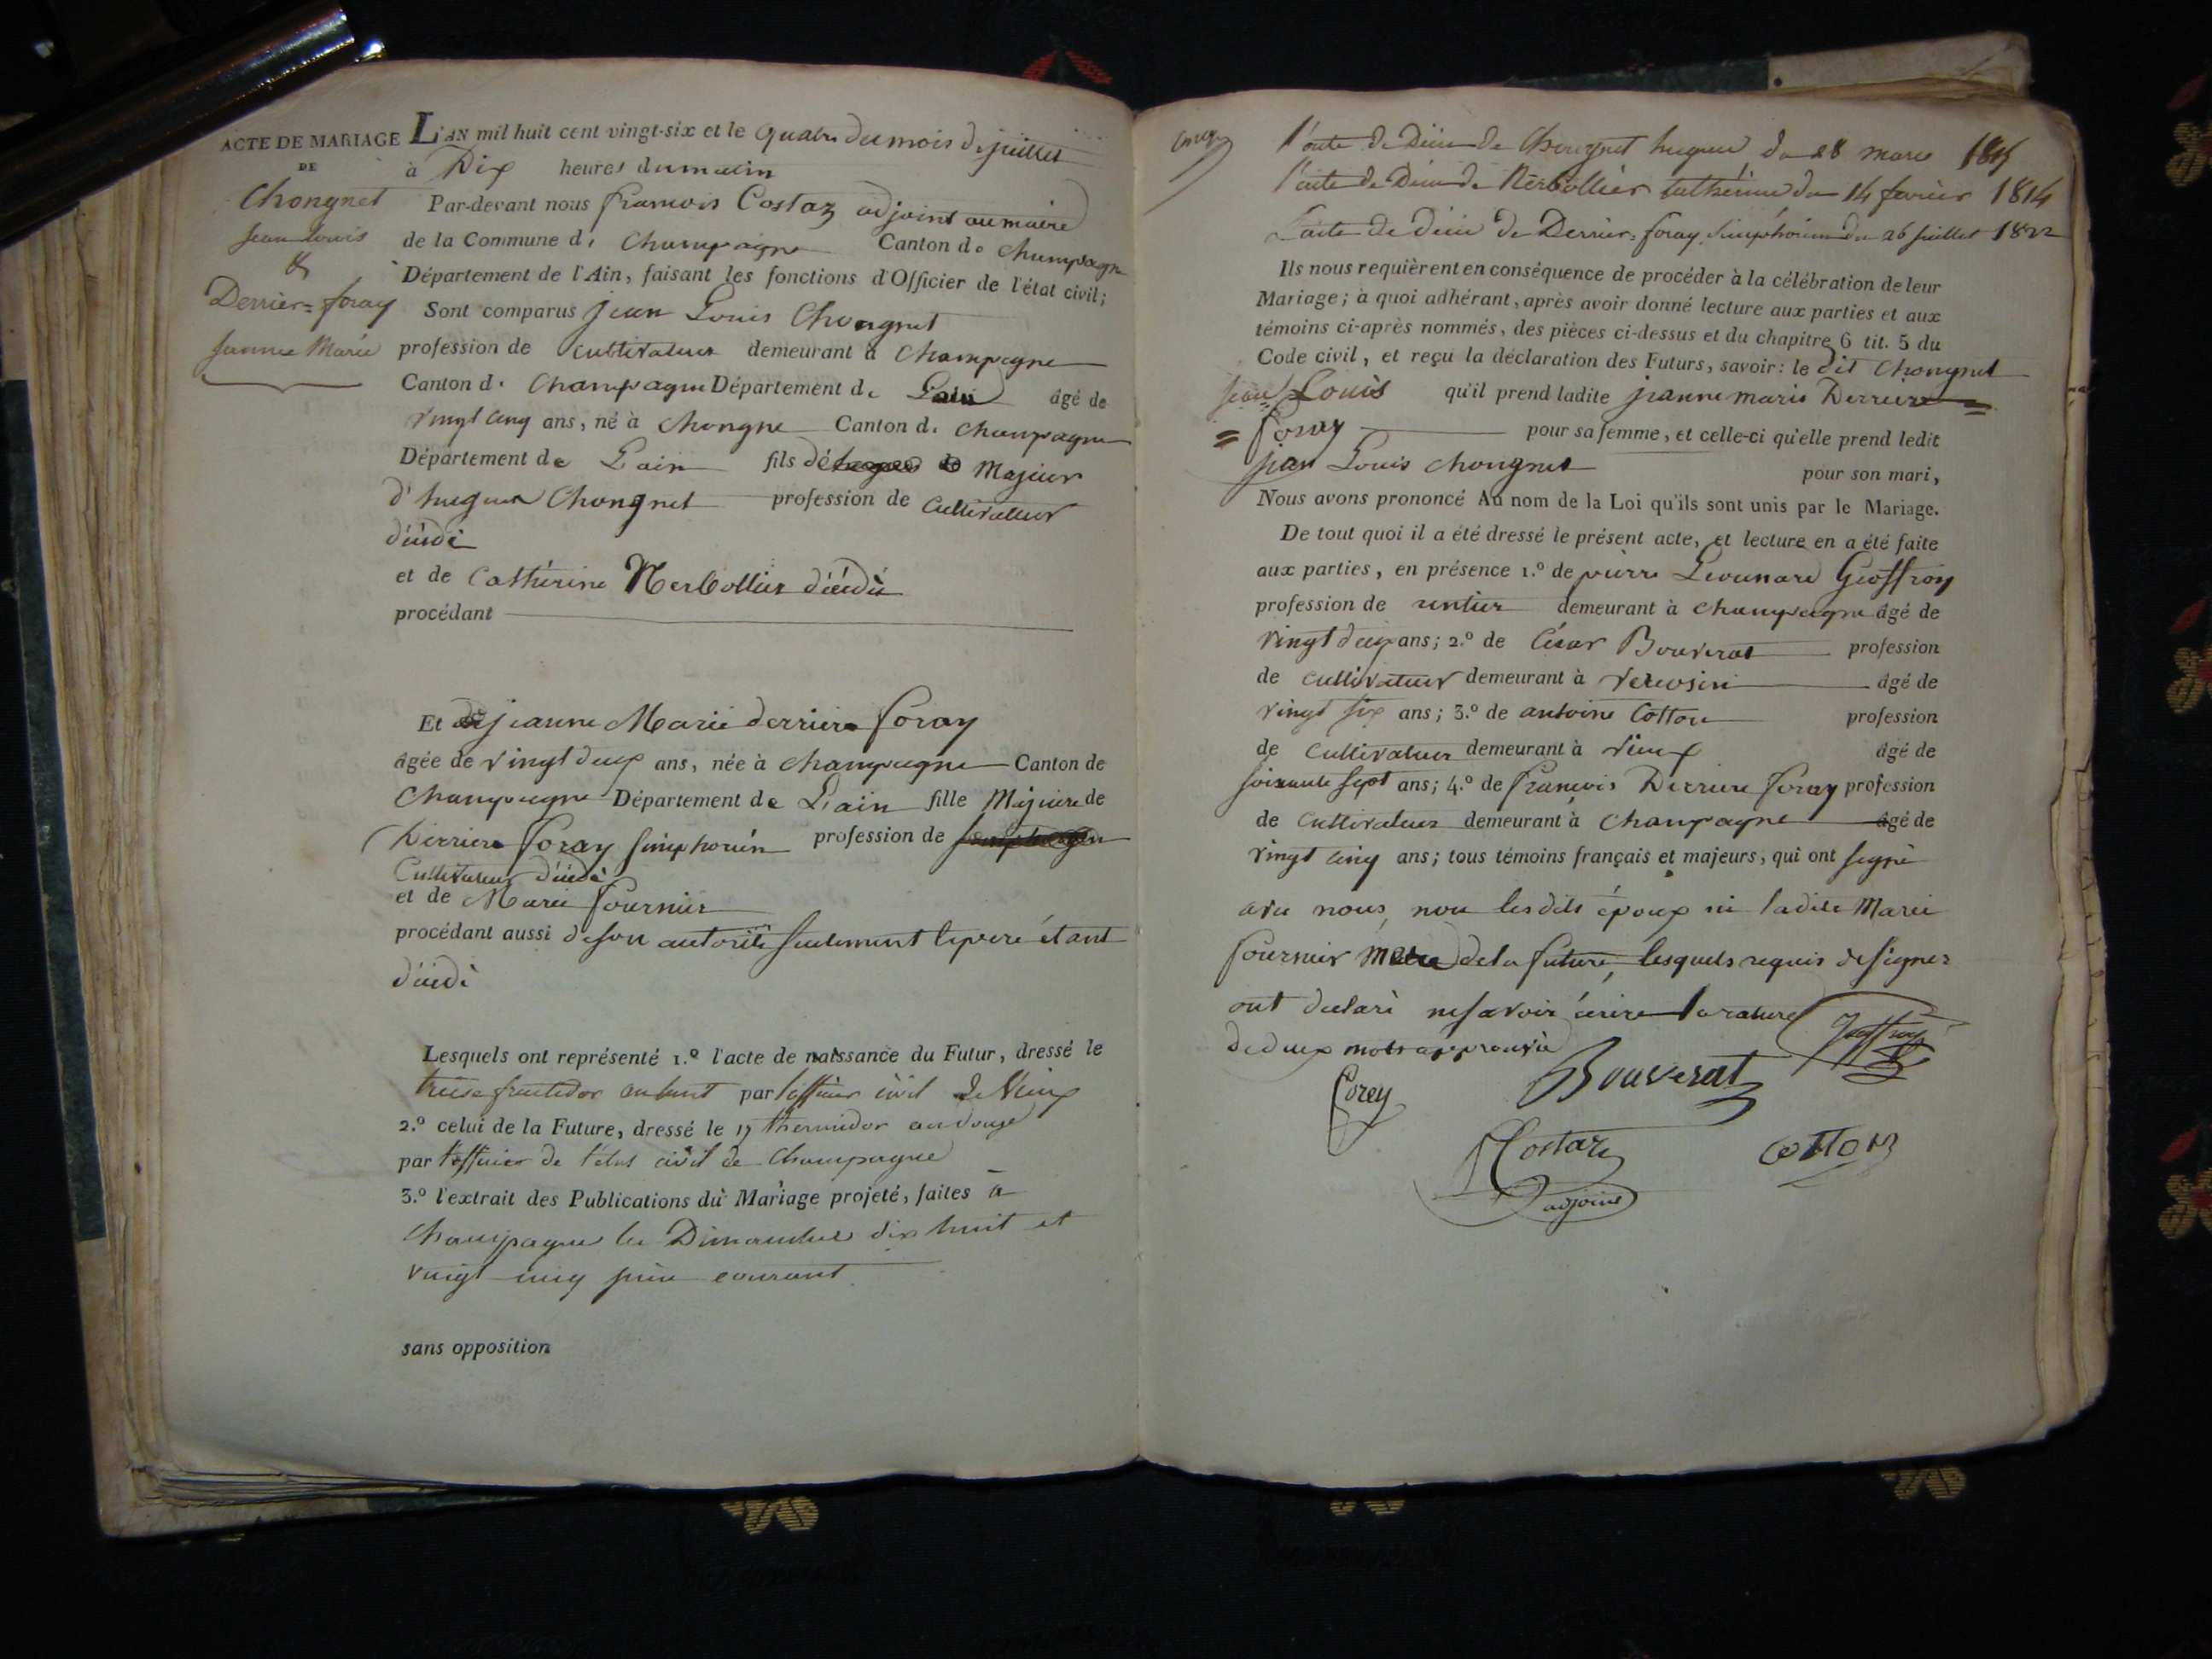 ACTE DE MARIAGE
DE
Chongnet
Jean Louis
&
Derrier=foray
Jeanne Marie
L'AN mil huit cent vingt-six et le quatre du mois de juillet
à Dix heures du matin
Par-devant nous francois Costaz adjoint au maire
de la Commune de Champagne Canton de Champagne
Département de l'Ain, faisant les fonctions d'Officier de l'état civil;
Sont comparus jean Louis Chongnet
profession de cultivateur demeurant à Champagne
Canton de Champagne Département de Lain âgé de
vingt cinq ans, né à chongne Canton de champagne
Département de Lain fils de Majeur
d'hugues Chongnet profession de Cultivateur
décédé
et de Cathérine Nerbollier décédée
procédant
Et jeanne Marie derriere foray
âgée de vingt deux ans, née à champagne Canton de
Champagne Département de Lain fille Majeure de
Derriere foray simphorién profession de
Cultivateur décédé
et de Marie fournier
procédant aussi de son autorité seulement le pere étant
décédé
Lesquels ont représenté 1.º l'acte de naissance du Futur, dressé le
treize fructidor an huit par l'officier civil de Vieux
2.º celui de la Future, dressé le 17 thermidor an douze
par l'officier de l'état civil de Champagne
3.º l'extrait des Publications du Mariage projeté, faites à
Champagne les Dimanches dix huit et
vingt cinq juin courant
sans opposition
l'acte de décès de Chongnet hugues du 28 mars
l'acte de décès de Nerbollier cathérine du 14 fevrier 1814
L'acte de décès de Derrier=foray Simphorien du 26 juillet 1822
Ils nous requièrent en conséquence de procéder à la célébration de leur
Mariage; à quoi adhérant, après avoir donné lecture aux parties et aux
témoins ci-après nommés, des pièces ci-dessus et du chapitre 6 tit. 5 du
Code civil, et reçu la déclaration des Futurs, savoir: le dit Chongnet
jean Louis qu'il prend ladite jeanne marie Derriere=
=foray pour sa femme, et celle-ci qu'elle prend ledit
jean Louis chongnet pour son mari,
Nous avons prononcé Au nom de la Loi qu'ils sont unis par le Mariage.
De tout quoi il a été dressé le présent acte, et lecture en a été faite
aux parties, en présence 1.º de pierre Leounard Geoffroy
profession de rentier demeurant à champagne âgé de
vingt deux ans; 2.º de César Bouverat profession
de cultivateur demeurant à âgé de
vingt six ans; 3.º de antoine Cotton profession
de Cultivateur demeurant à vieux âgé de
soixante sept ans; 4.º de francois Derriere foray profession
de Cultivateur demeurant à Champagne âgé de
vingt cinq ans; tous témoins français et majeurs, qui ont signé
avec nous, non les dits époux ni ladite Marie
fournier mere de la future, lesquels requis de signer
ont declaré ne savoir écrire la rature
de deux mots approuvée
Geoffroy
Bouverat
forey
Costaz
adjoint
cotton